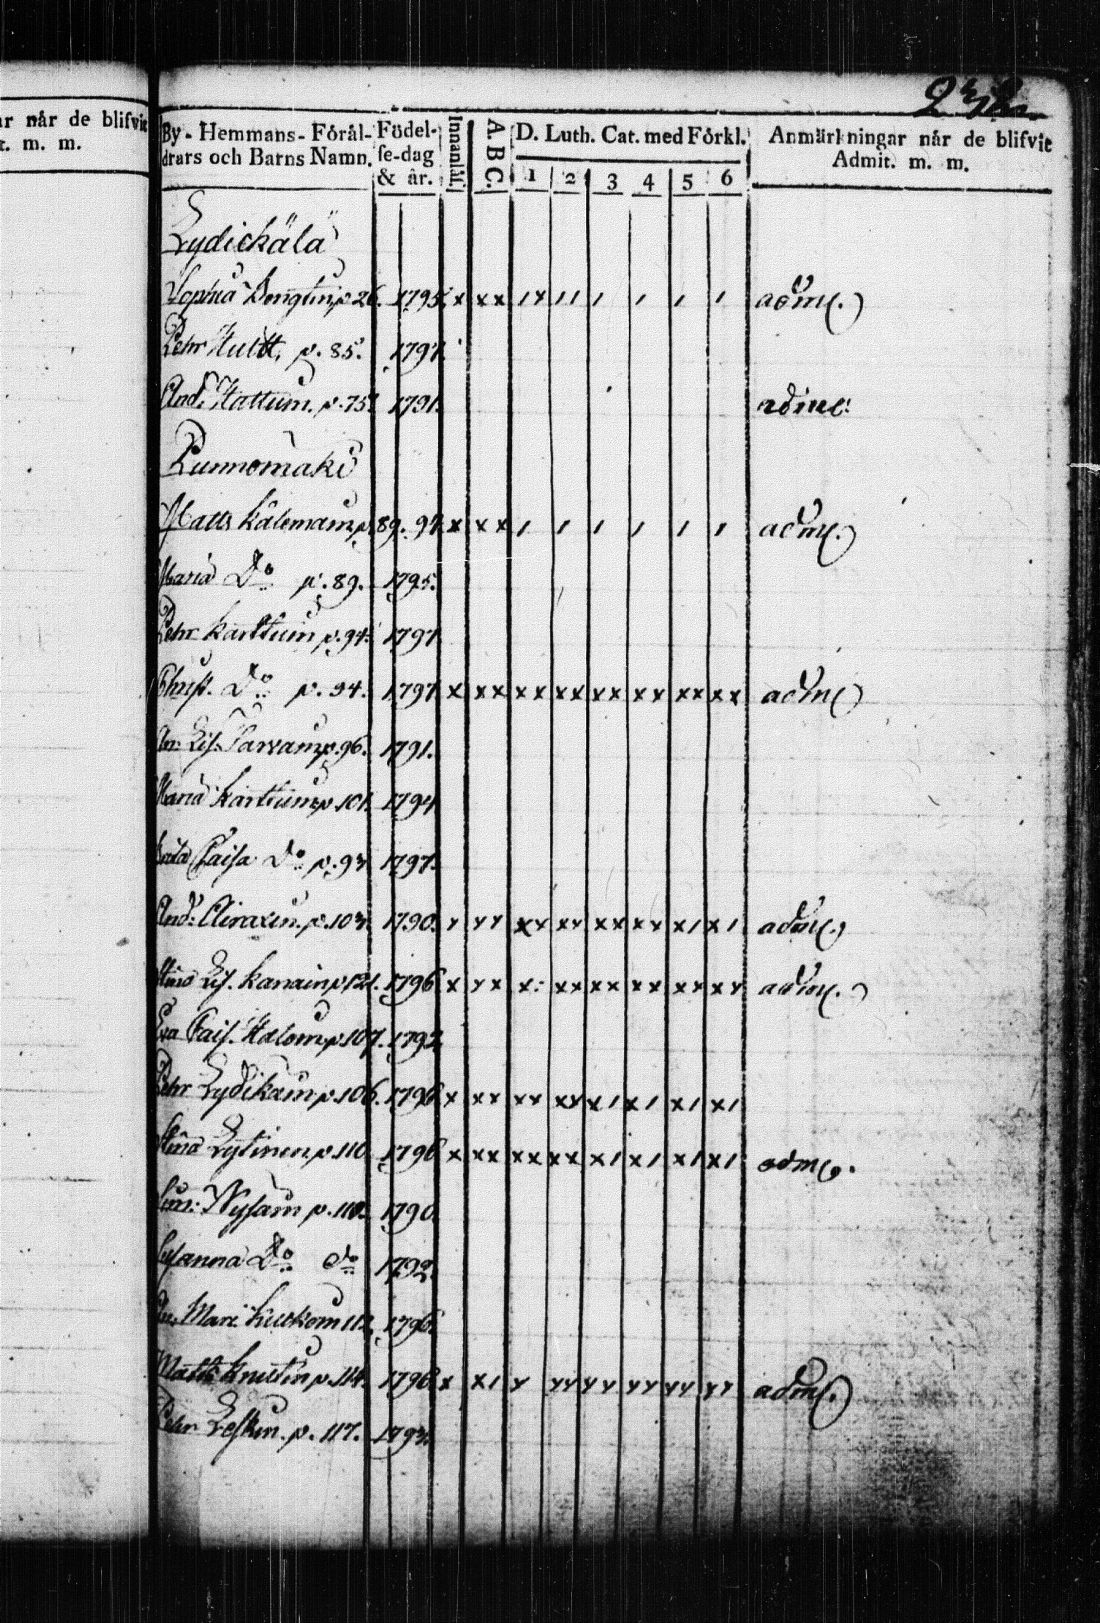 ar når de blifvit
t. m. m.
By - Hemmans - Förål-
drars och Barns Namn.
Födel-
se-dag
& år.
Innanläs.
A B C.
D. Luth. Cat. med Förkl.
1 2 3 4 5 6
Anmärkningar når de blifvit
Admit. m. m.
Lydickälä
Sophia Bengtin p 26. 1795. x xx 1x 11 1 1 1 1 adm.
Pehr Hultt, p. 85. 1797.
And. Hattum. p. 75. 1791. adm.
Punnomäki
Matts p. 89. 97. x xx 1 1 1 1 1 1 adm.
Maria Do p. 89. 1795.
Pehr Karttuin p. 94. 1797
Christ. Do p. 94. 1797 x xx xx xx xx xx xx xx adm
An: Lis. p. 96. 1791.
Maria Karttuin p. 101. 1794
Caisa Do p. 93 1797.
And: p. 103. 1790. x xx xx xx xx xx x1 x1 adm.
Stina Lis. p 121. 1796 x xx x: xx xx xx xx xx adm.
Eva Cais. p. 107. 1792
Pehr Lydikäin p. 106. 1796 x xx xx xx x1 x1 x1 x1
Stina Lytinen p. 110 1796 x xx xx xx x1 x1 x1 x1 adm.
p. 110. 1790.
Susanna Do do 1792.
Mari 112. 1796.
Matts Knutin p. 114. 1796 x x1 x xx xx xx xx xx adm.
Pehr Leskin. p. 117. 1793.